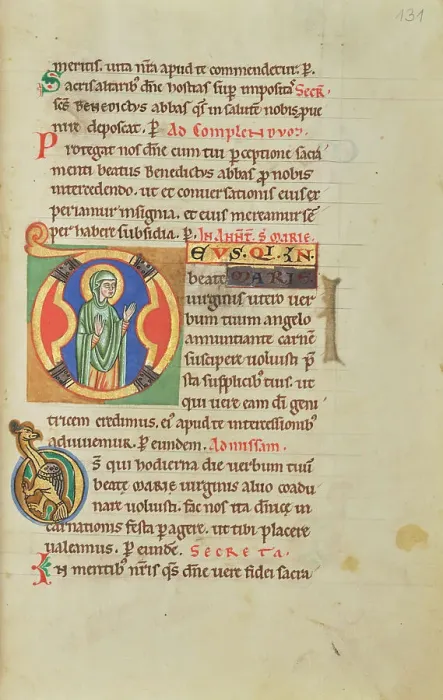 131
meritis. uita nr̄a apud te commendetur. P̄.
Sacris altarib; dn̄e hostias sup̄ imposita᷒ Secr̄.
sc̄s Benedictus abbas qs̄ in salutē nobis p̱ue
nire deposcat. P̄. Ad Complendum.
Protegat nos dn̄e cum tui p̱ceptione sacra
menti beatus Benedictus abbas p̱ nobis
intercedendo. ut et conuersationis eius ex
periamur insignia. et eius mereamur sē
per habere subsidia. P̄. In Annt̄. S. Marie.
DEUS. QI. IN
beatę MARIE
uirginis utero uer
bum tuum angelo
annuntiante carnē
suscipere uoluisti. p̄
sta supplicib; tuis. ut
qui uere eam dī geni
tricem credimus. ei᷒ apud te intercessionib;
adiuuemur. P̄ eundem. Ad missam.
Ds̄ qui hodierna die uerbum tuū
beatę MARIE uirginis aluo coadu
nare uoluisti. fac nos ita dn̄icę in
carnationis festa pagere. ut tibi placere
ualeamus. P̄ eundē. Secreta.
In mentib; nr̄is qs̄ dn̄e uere fidei sacra